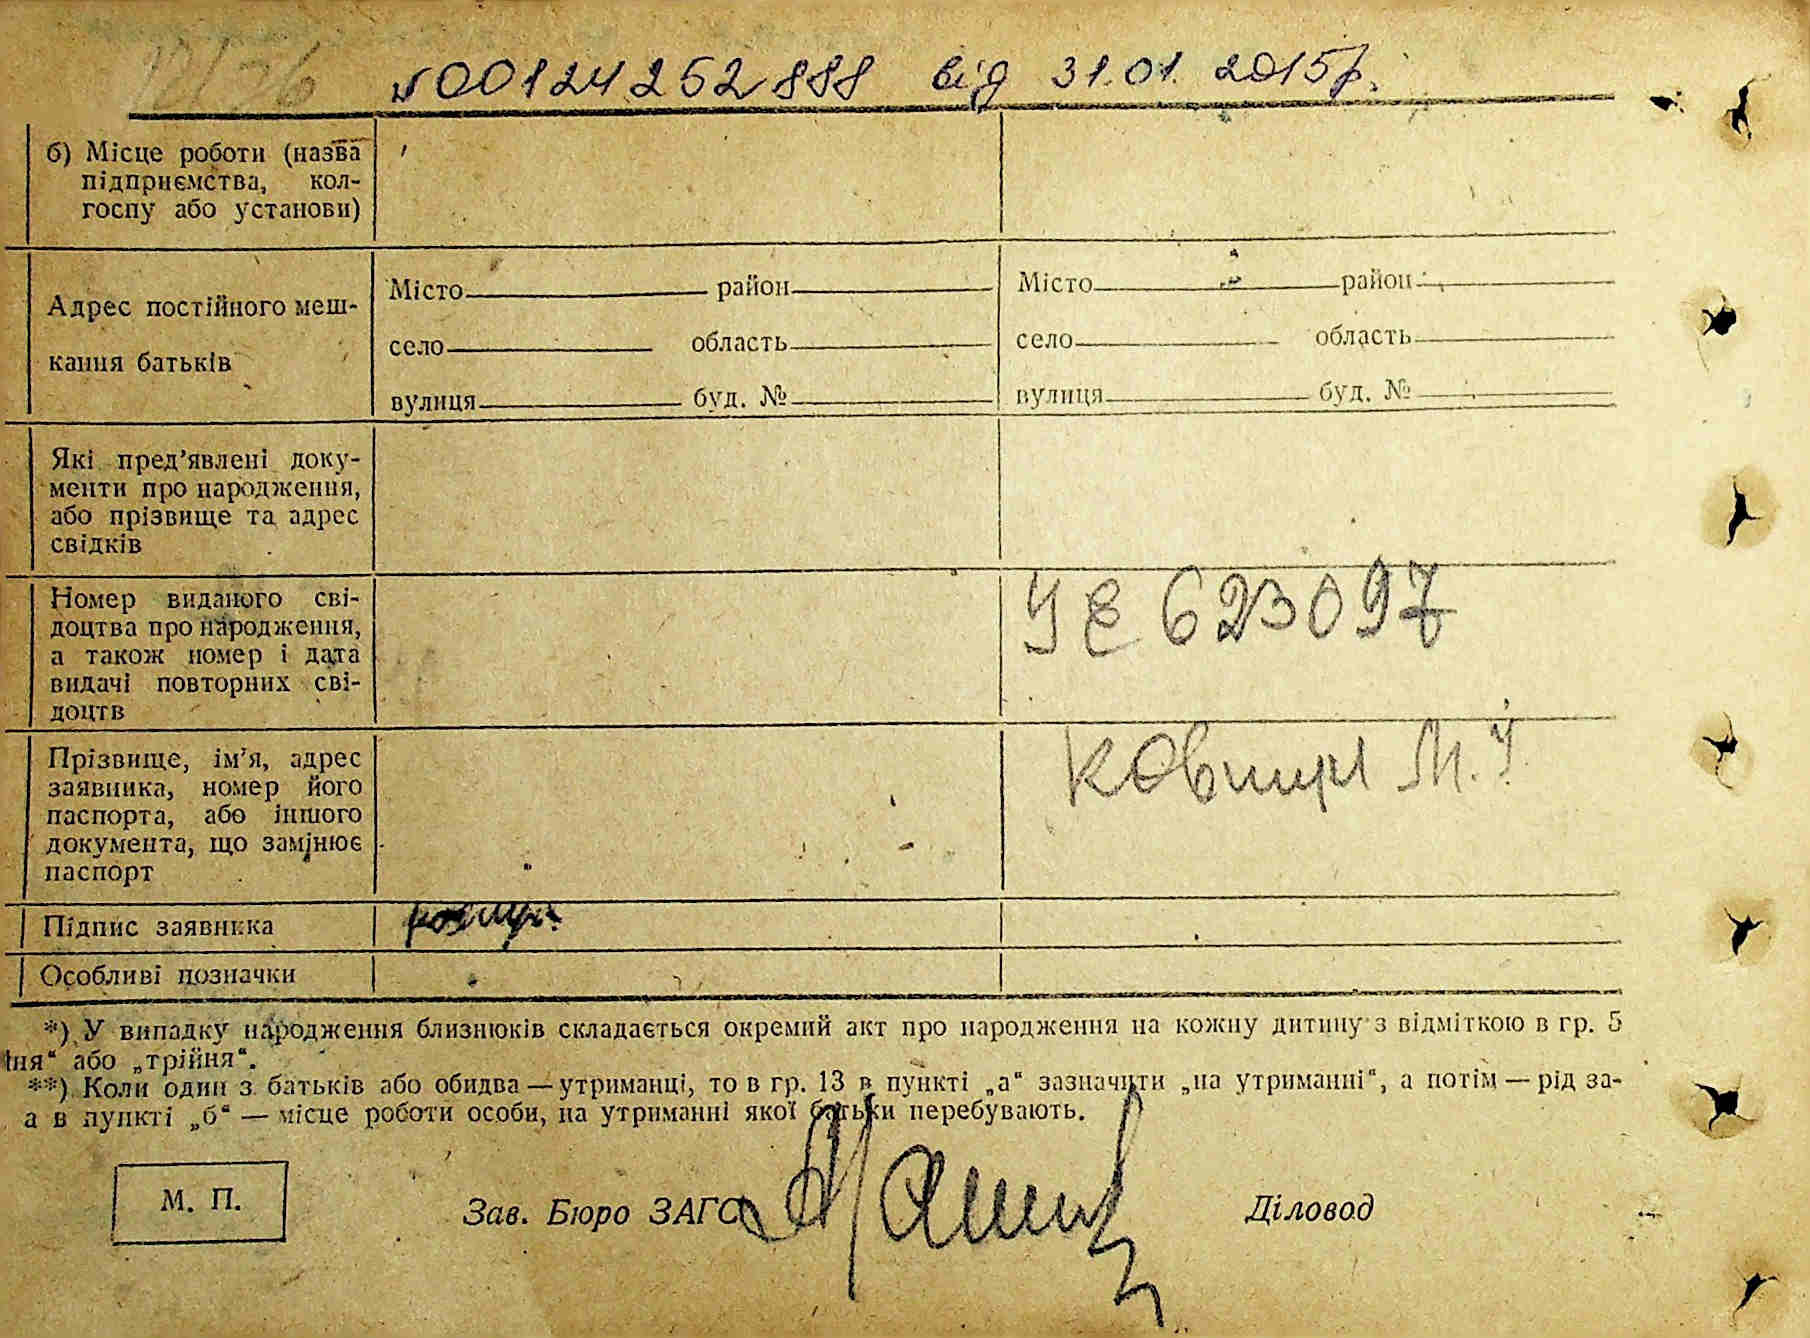 №00124252888 від 31.01.2015р.
б) Місце роботи (назва
підприємства, кол-
госпу або установи)
Адрес постійного меш-
кання батьків
Місто район
село область
вулиця буд. №
Місто район
село область
вулиця буд. №
Які пред’явлені доку-
менти про народження,
або прізвище та адрес
свідків
Номер виданого сві-
доцтва про народження,
а також номер і дата
видачі повторних сві-
доцтв
УЕ 623097
Прізвище, ім’я, адрес
заявника, номер його
паспорта, або іншого
документа, що замінює
паспорт
Підпис заявника
Особливі позначки
*) У випадку народження близнюків складається окремий акт про народження на кожну дитину з відміткою в гр. 5
ня“ або „трійня“.
**) Коли один з батьків або обидва — утриманці, то в гр. 13 в пункті „а“ зазначити „на утриманні“, а потім — рід за-
а в пункті „б“ — місце роботи особи, на утриманні якої батьки перебувають.
М. П.
Зав. Бюро ЗАГС
Діловод